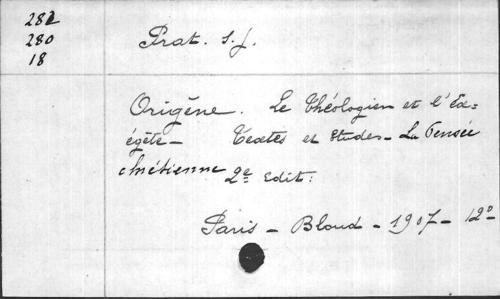 282
280
18
Prat. S. J.
Origène. Le théologien et l'Ex=
égète - Textes et Etudes - La Pensée
chrétienne 2e Edit:
Paris - Bloud - 1907 - 12°